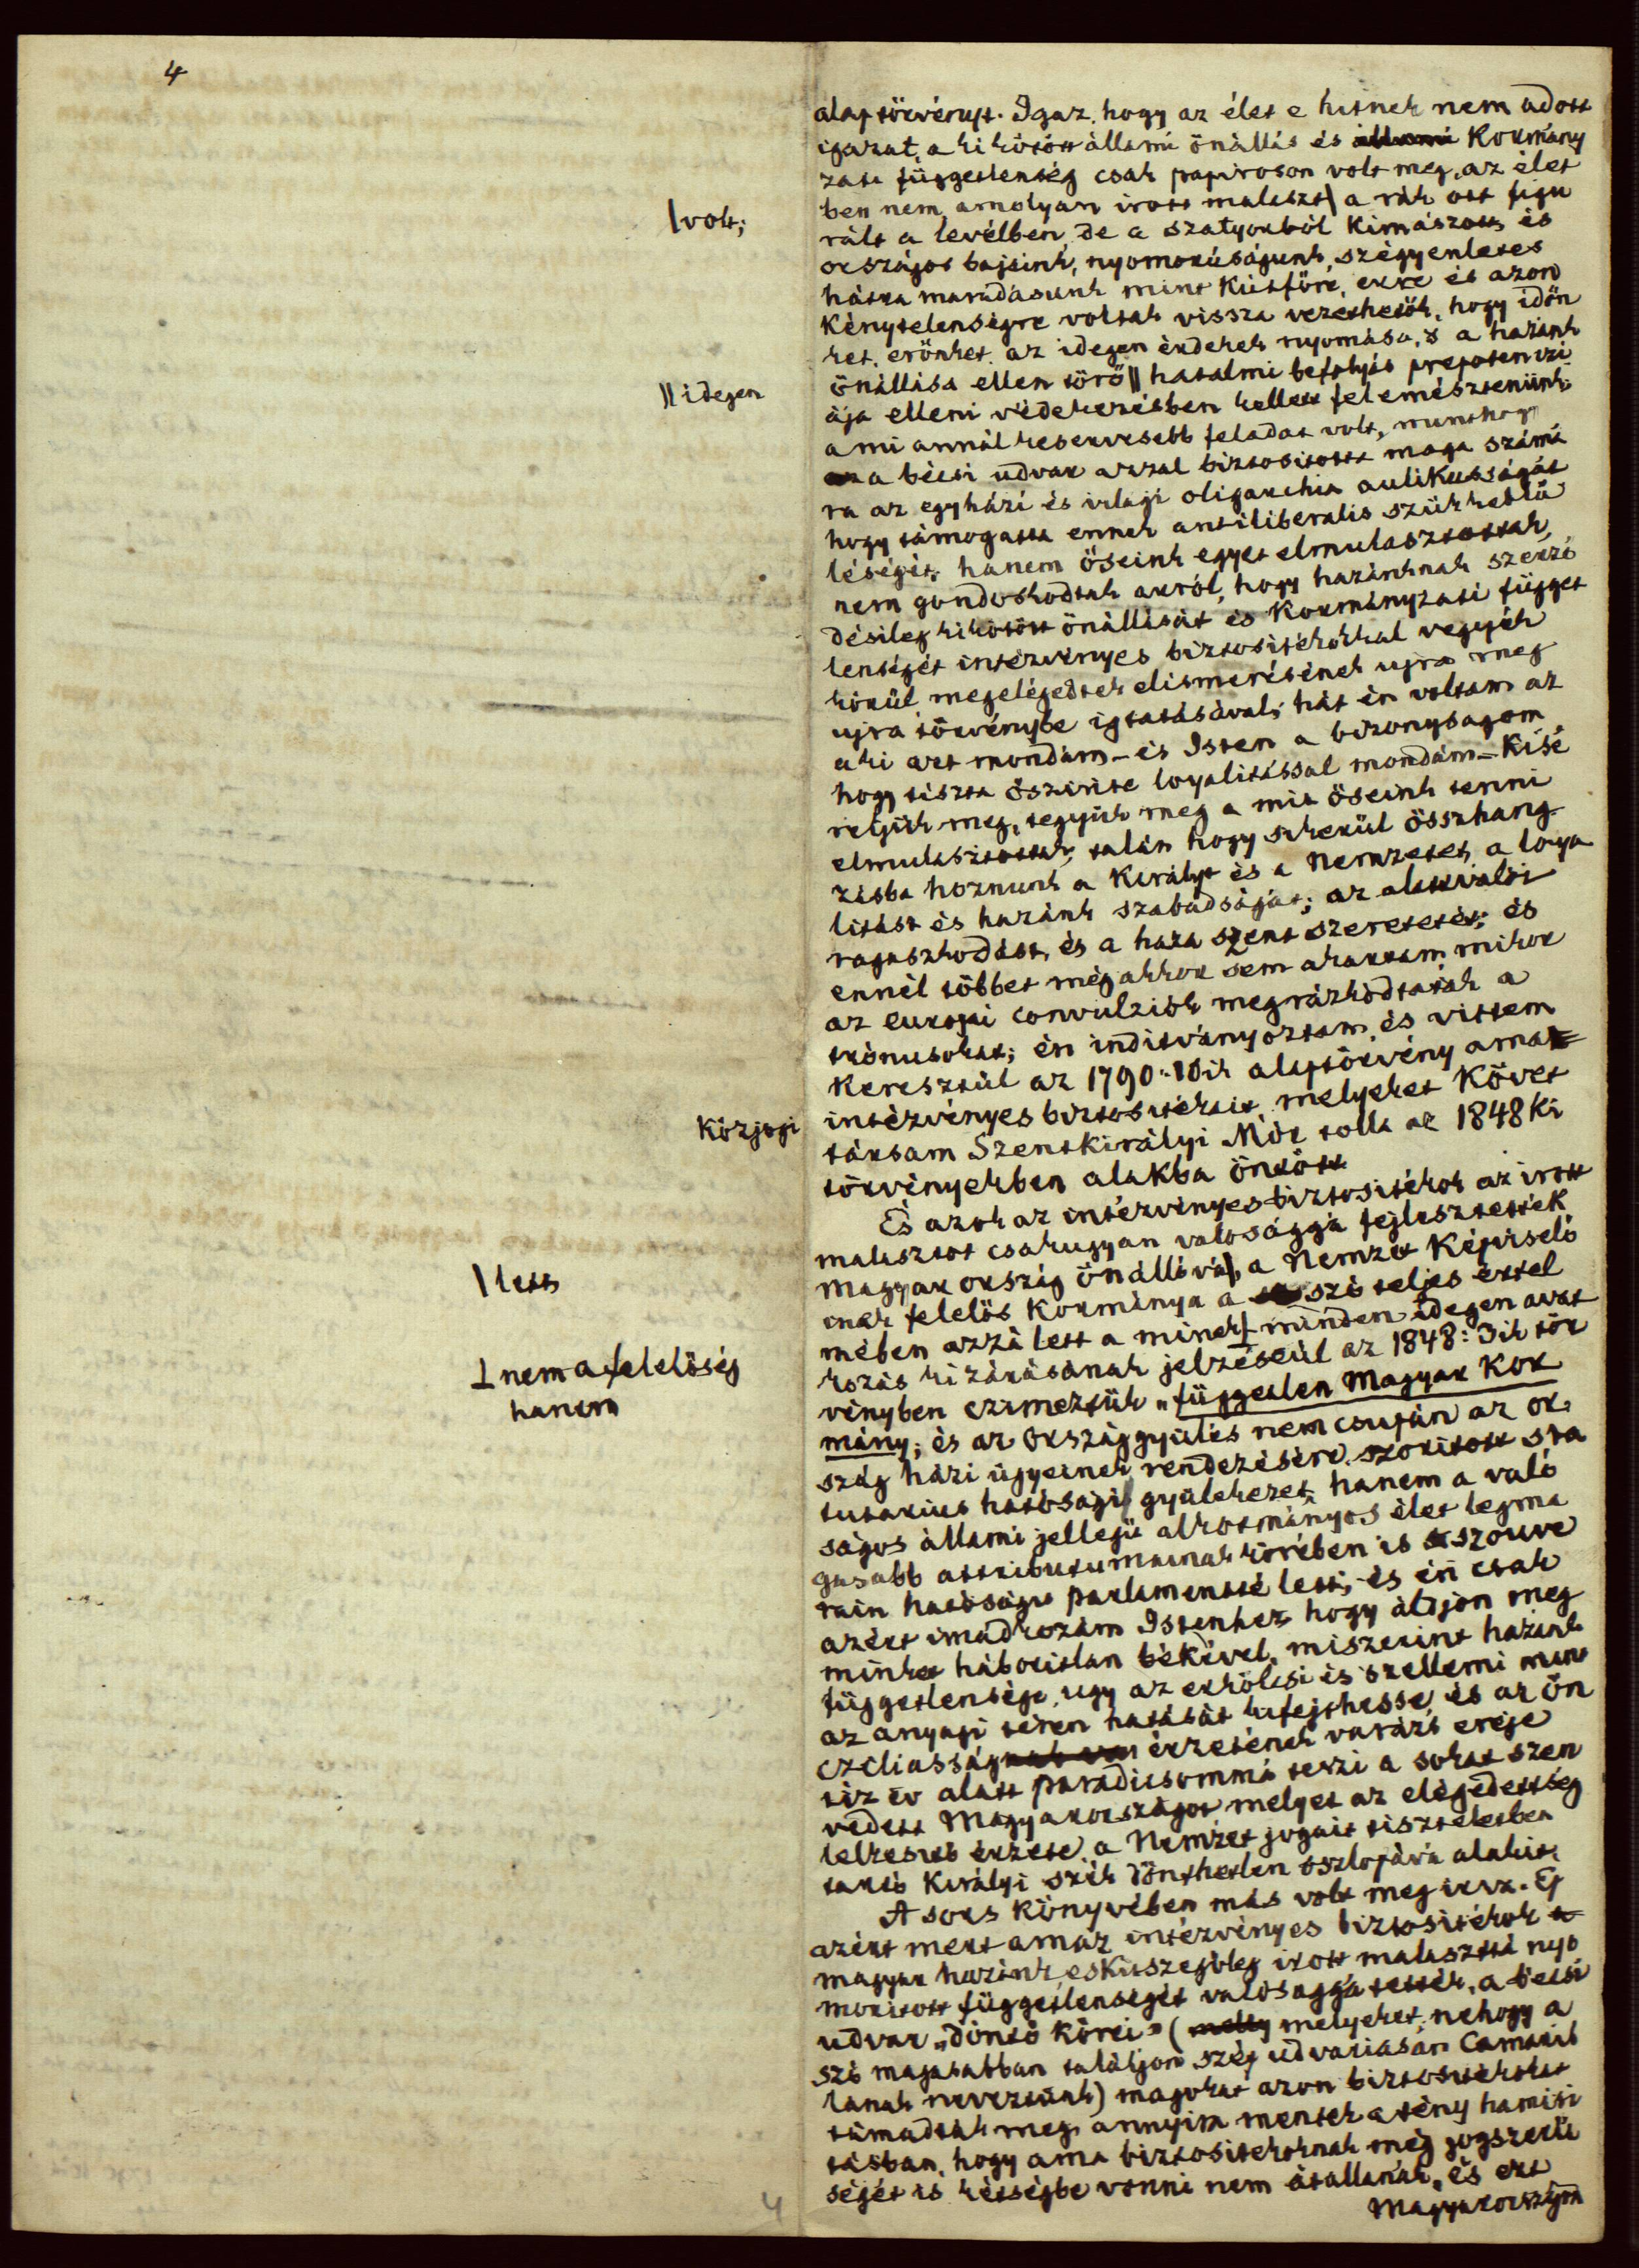 4
alaptörvényt. Igaz, hogy az élet e hitnek nem adott
igazat, a kikötött állami önállás és állami Kormány
zati függetlenség csak papiroson volt meg, az élet
ben nem, amolyan irott malaszt| a rák ott figu
|volt;
rált a levélben, de a szatyorból kimászott, és
országos bajaink, nyomorúságunk, szégyenletes
hátra maradásunk mint kútföre, erre és azon
kénytelenségre voltak vissza vezethetők, hogy időn
ket, erőnket, az idegen érdekek nyomása, s a hazánk
önállása ellen törő || hatalmi befolyás prepotenczi
|| idegen
ája elleni védekezésben kellett felemésztenünk;
a mi annál keservesebb feladat volt, minthogy
a bécsi udvar azzal biztositotta maga számá
ra az egyházi és világi oligarchia aulikusságát
hogy támogatta ennek antiliberalis szűkkeblű
léségét; hanem őseink egyet elmulasztottak,
nem gondoskodtak arról, hogy hazánknak szerző
désileg kikötött önállását és Kormányzati függet
lenségét intézményes biztositékokkal vegyék
körül, megelégedtek elismerésének ujra meg
ujra törvénybe igtatásával; hát én voltam az
a ki azt mondám – és Isten a bizonyságom
hogy tiszta őszinte loyalitással mondám – Kisé
reljük meg, tegyük meg a mit őseink tenni
elmulasztottak, talán hogy sikerül összhang
zásba hoznunk a Királyt és a Nemzetet, a loya
litást és hazánk szabadságát; az alattvalói
ragaszkodást, és a haza szent szeretetét; és
ennél többet még akkor sem akartam mikor
az europai convulziók megrázkodtaták a
trónusokat; én inditványoztam és vittem
keresztül az 1790: 10ik alaptörvény ama
intézményes biztositékait, melyeket Követ
Közjogi
társam Szentkirályi Mór tolla az 1848ki
törvényekben alakba öntött
És azok az intézményes biztositékok az irott
malasztot csakugyan valósággá fejlesztették
Magyarország önállóvá|, a Nemzet Képviselő
| lett
inek felelős kormánya a szó teljes értel
mében azzá lett a minek ⊥ minden idegen avat
⊥ nem a felelőség
hanem
kozás kizárásának jelzéséül az 1848: 3ik tör
vényben czimeztük "független Magyar Kor
mány; és az Országgyülés nem csupán az or
szág házi ügyeinek rendezésére szoritott sta
tutarius hatóságú gyülekezet, hanem a való
ságos állami jellegü alkotmányos élet legma
gasabb attributumainak körében is szouve
rain hatóságu parlamentté lett; és én csak
azért imádkozám Istenhez hogy áldjon meg
minket háboritlan békével, miszerint hazánk
függetlensége, ugy az erkölcsi és szellemi mint
az anyagi téren hatását kifejthesse, és az ön
czéliasságnak érzetének varázs ereje
tiz év alatt paradicsommá teszi a sokat szen
vedett Magyarországot melyet az elégedettség
lelkesitő érzete, a Nemzet jogait tiszteletben
tartó Királyi szék dönthetlen oszlopává alakit.
A sors Könyvében más volt meg irva. Ép
azért mert amaz intézményes biztositékok
magyar hazánk esküszegőleg irott malaszttá nyo
moritott függetlenségét valósággá tették, a bécsi
udvar „döntő körei" ( melly melyeket, nehogy a
szó magasabban találjon szög udvariasan Camaril
lának neveztünk) magokat azon biztositékokat
támadták meg, annyira mentek a tény hamisi
tásban, hogy ama biztositékoknak még jogszerü
ségét is kétségbe vonni nem átallanák, és ezt
Magyarország
4